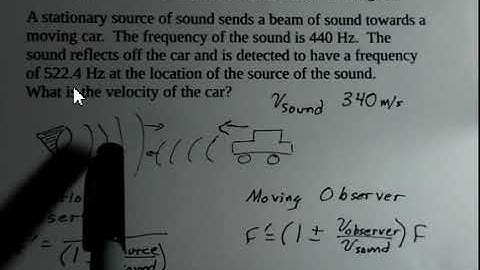 A stationary source of sound sends a beam of sound towards a
moving car. The frequency of the sound is 440 Hz. The
sound reflects off the car and is detected to have a frequency
of 522.4 Hz at the location of the source of the sound.
What is the velocity of the car?
Vsound 340 m/s
Moving Observer
F' = (1 ± Vobserver/Vsound) F